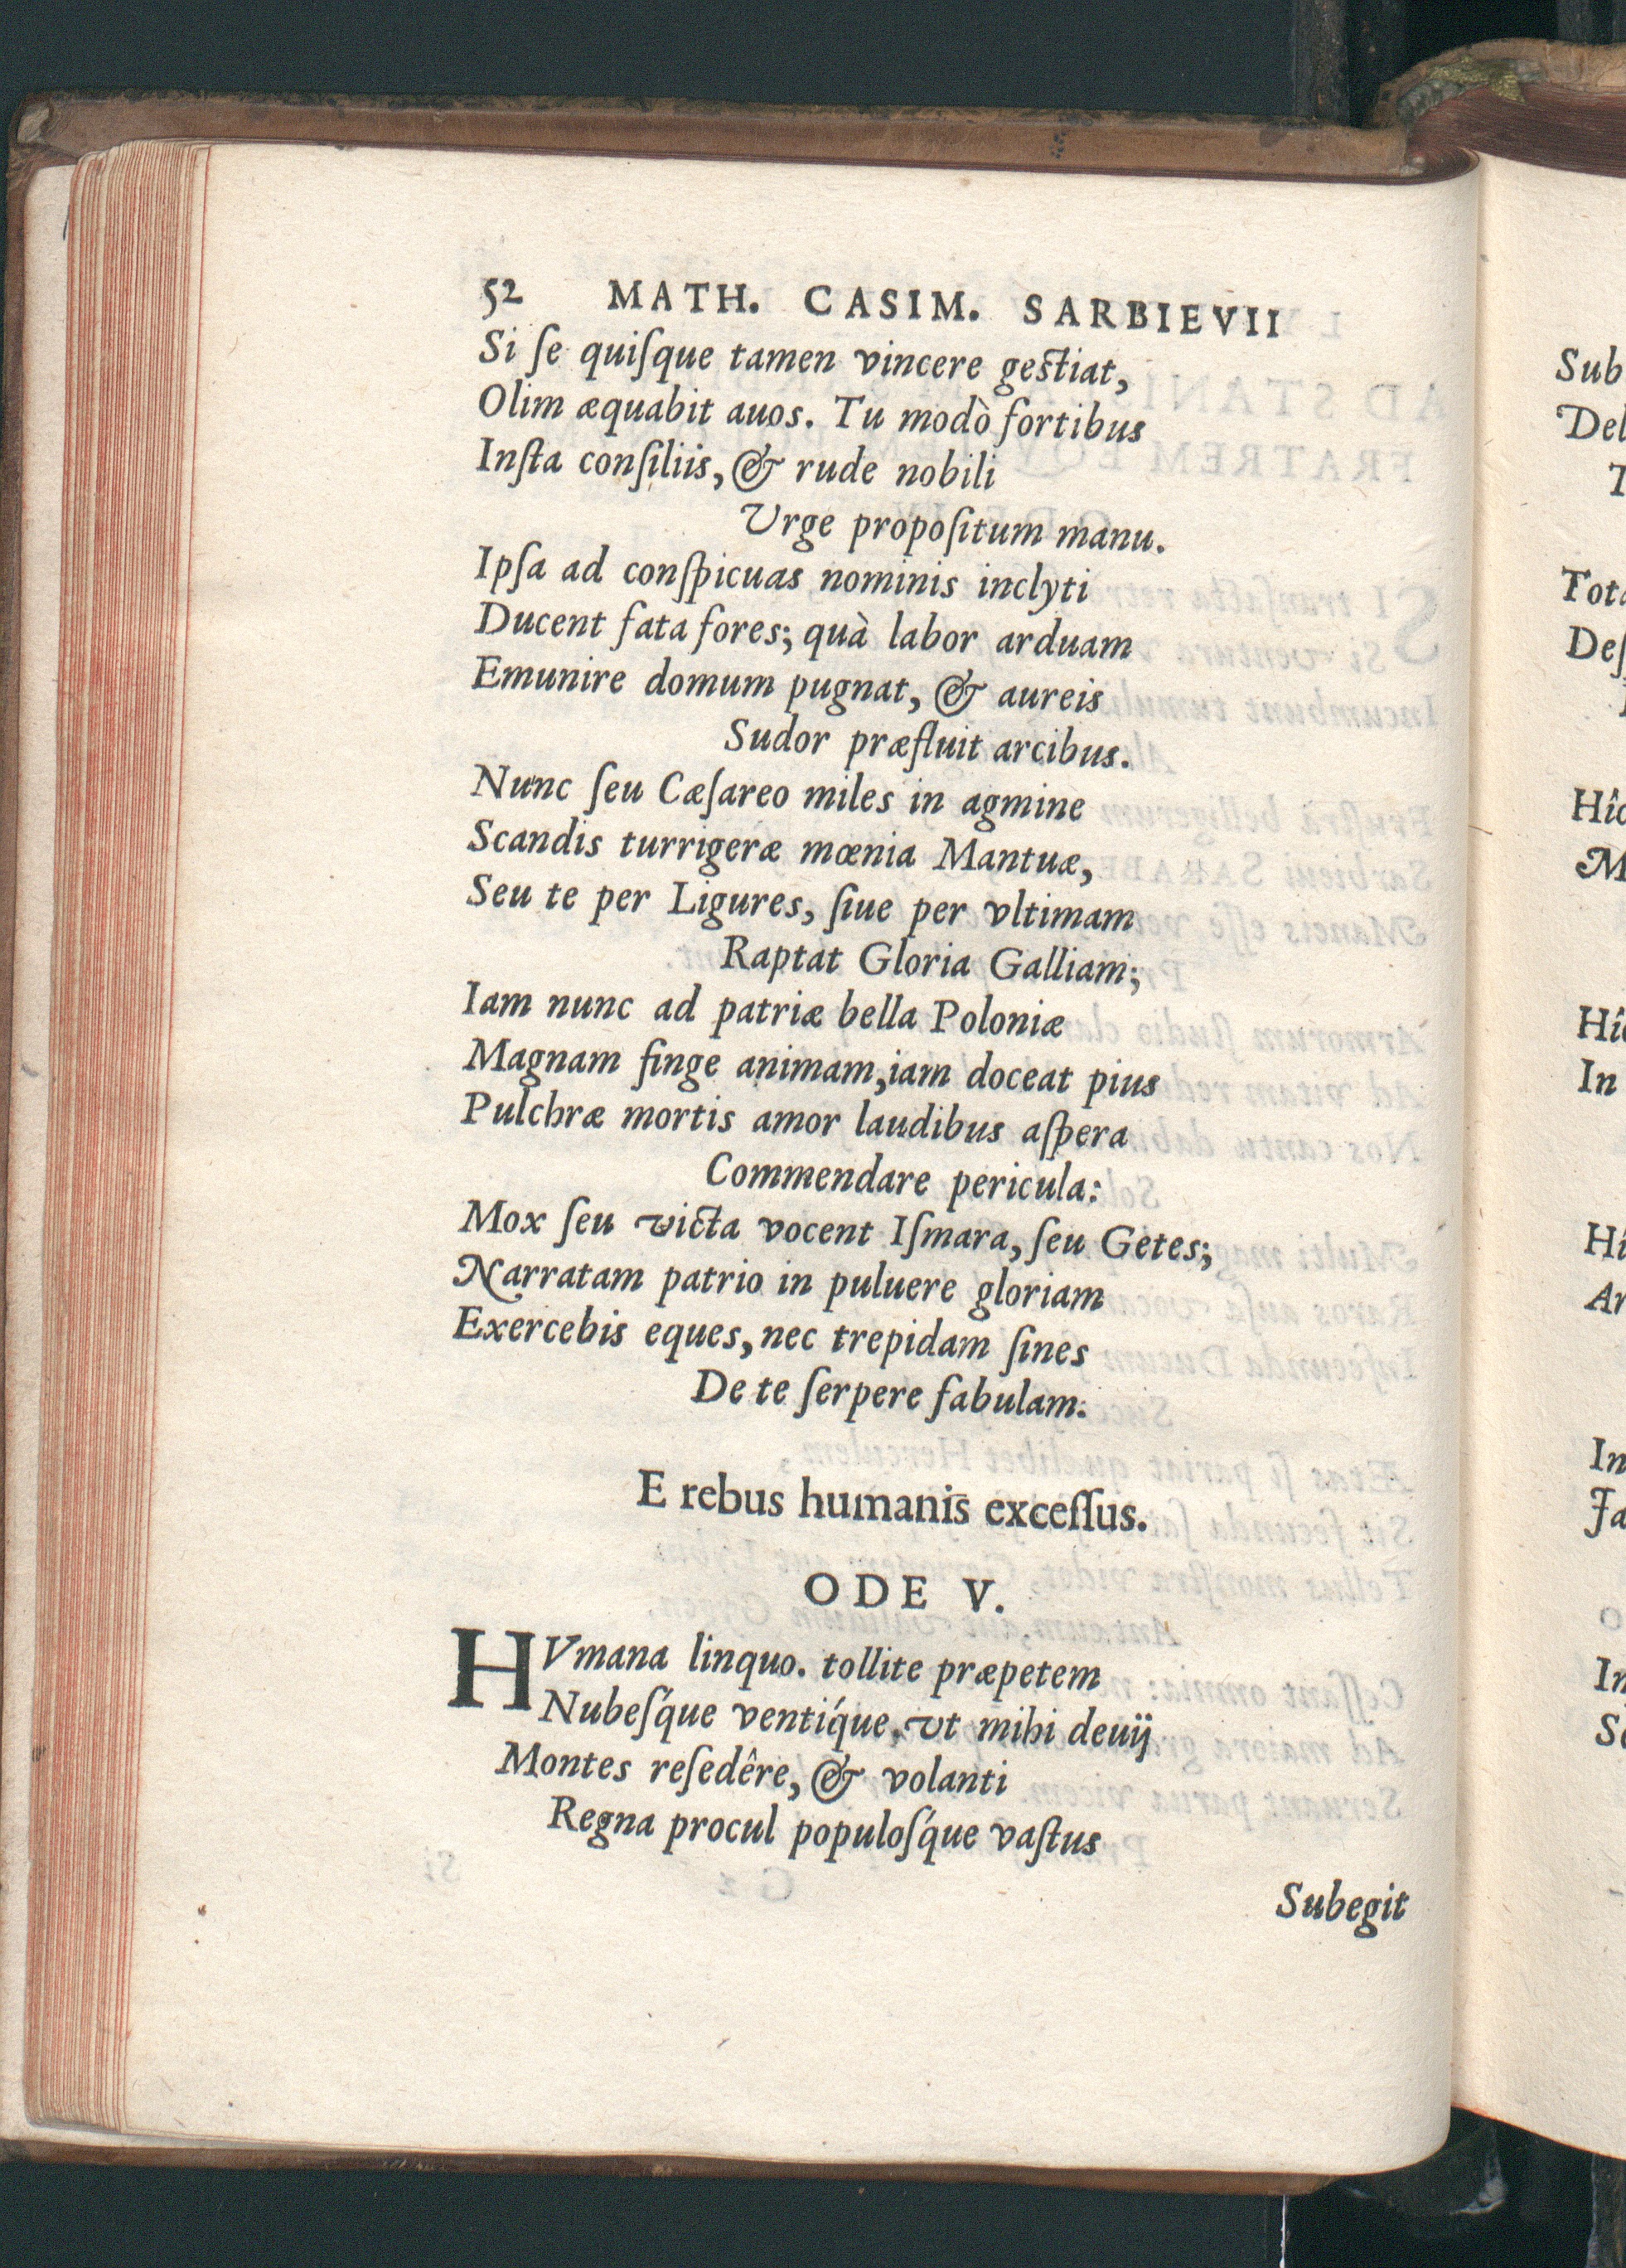 52 MATH. CASIM. SARBIEVII
Si ſe quiſque tamen vincere geſtiat,
Olim æquabit auos. Tu modò fortibus
Inſta conſiliis, & rude nobili
Vrge propoſitum manu.
Ipſa ad conſpicuas nominis inclyti
Ducent fata fores; quà labor arduam
Emunire domum pugnat, & aureis
Sudor præfluit arcibus.
Nunc ſeu Cæſareo miles in agmine
Scandis turrigeræ mœnia Mantuæ,
Seu te per Ligures, ſiue per vltimam
Raptat Gloria Galliam;
Iam nunc ad patriæ bella Poloniæ
Magnam finge animam, iam doceat pius
Pulchræ mortis amor laudibus aſpera
Commendare pericula:
Mox ſeu victa vocent Iſmara, ſeu Getes;
Narratam patrio in puluere gloriam
Exercebis eques, nec trepidam ſines
De te ſerpere fabulam.
E rebus humanis exceſſus.
ODE V.
HVmana linquo. tollite præpetem
Nubeſq́ue ventiq́ue, vt mihi deuij
Montes reſedêre, & volanti
Regna procul populoſq́ue vaſtus
Subegit
Sub
Del
Tota
Deſ
Hîc
M
In
In
Ja
In